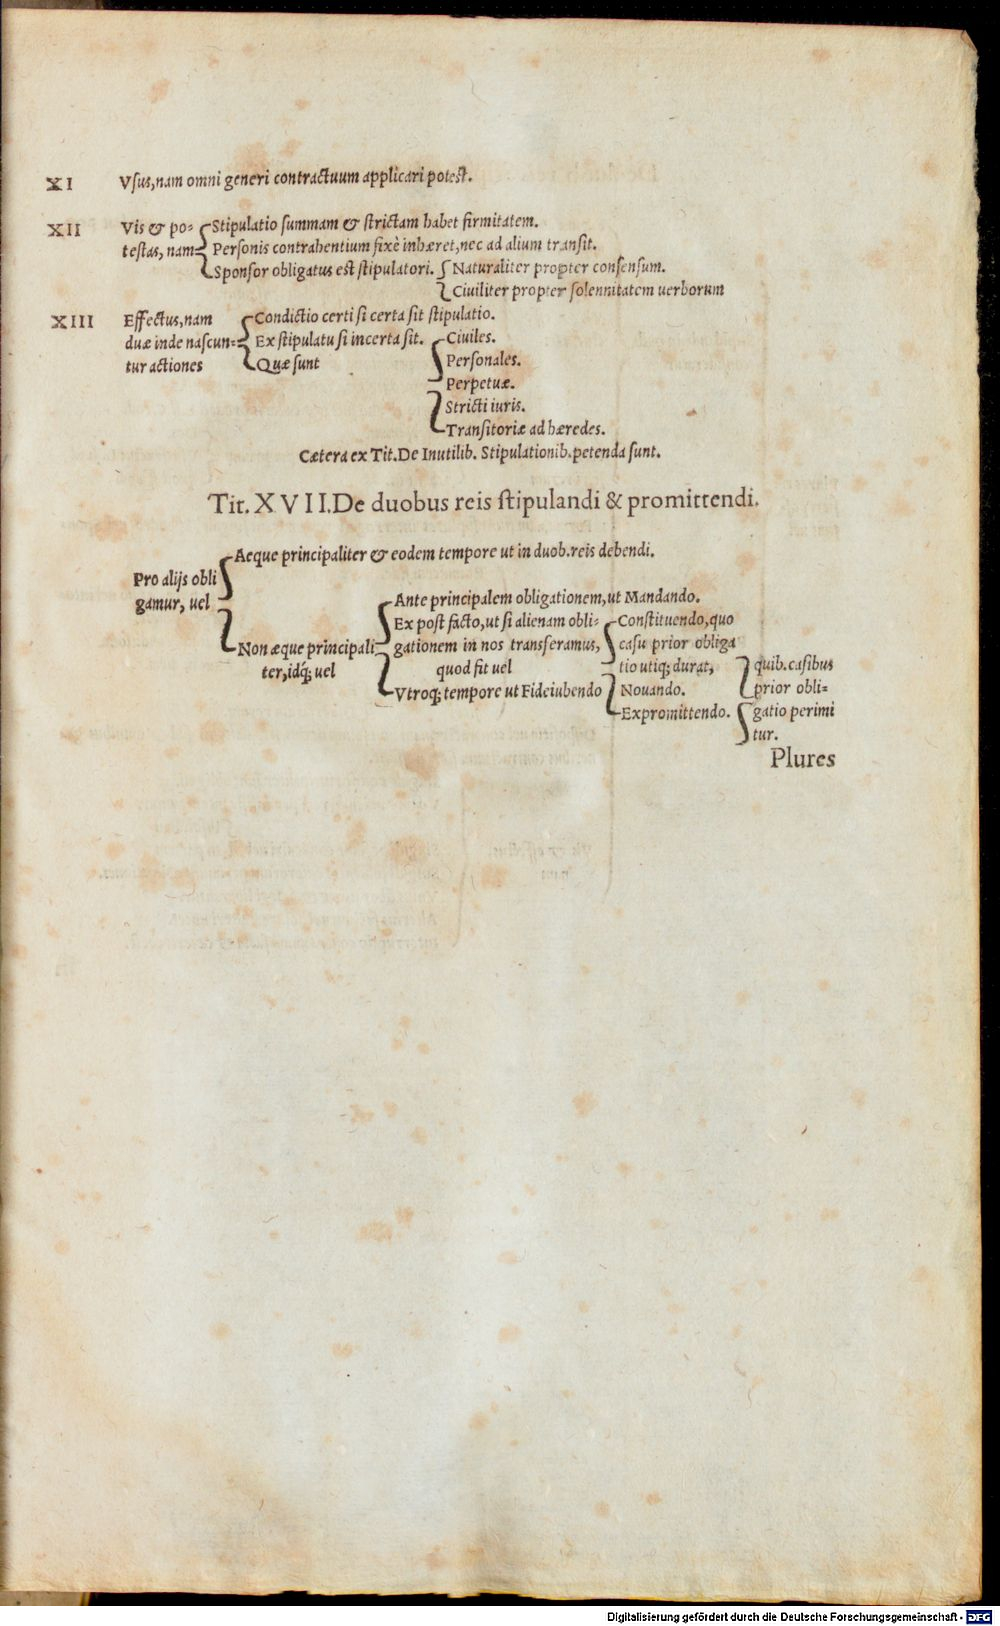 XI Vsus, nam omni generi contractuum applicari potest.
XII Vis & po= Stipulatio summam & strictam habet firmitatem.
testas, nam= Personis contrahentium fixè inhæret, nec ad alium transit.
Sponsor obligatus est stipulatori. Naturaliter propter consensum.
Ciuiliter propter solennitatem uerborum
XIII Effectus, nam Condictio certi si certa sit stipulatio.
duæ inde nascun= Ex stipulatu si incerta sit. Ciuiles.
tur actiones Quæ sunt Personales.
Perpetuæ.
Stricti iuris.
Transitoriæ ad hæredes.
Cætera ex Tit. De Inutilib. Stipulationib. petenda sunt.
Tit. XVII. De duobus reis stipulandi & promittendi.
Aeque principaliter & eodem tempore ut in duob. reis debendi.
Pro alijs obli
gamur, uel
Ante principalem obligationem, ut Mandando.
Ex post facto, ut si alienam obli= Constituendo, quo
Non æque principali gationem in nos transferamus, casu prior obliga
ter, idq; uel quod fit uel tio utiq; durat, quib. casibus
Vtroq; tempore ut Fideiubendo Nouando. prior obli=
Expromittendo. gatio perimi
tur.
Plures
Digitalisierung gefördert durch die Deutsche Forschungsgemeinschaft - DFG